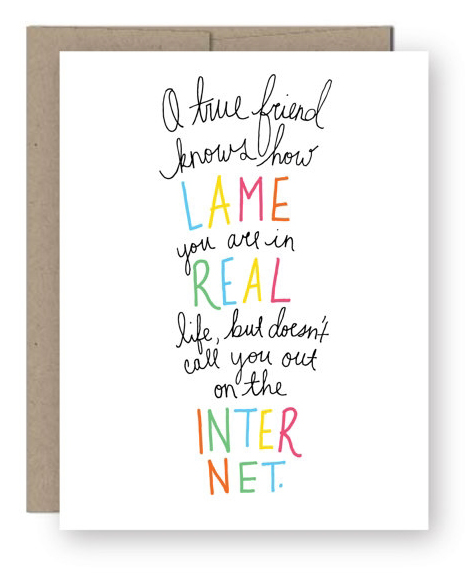 A true friend
knows how
LAME
you are in
REAL
life, but doesn't
call you out
on the
INTER
NET.